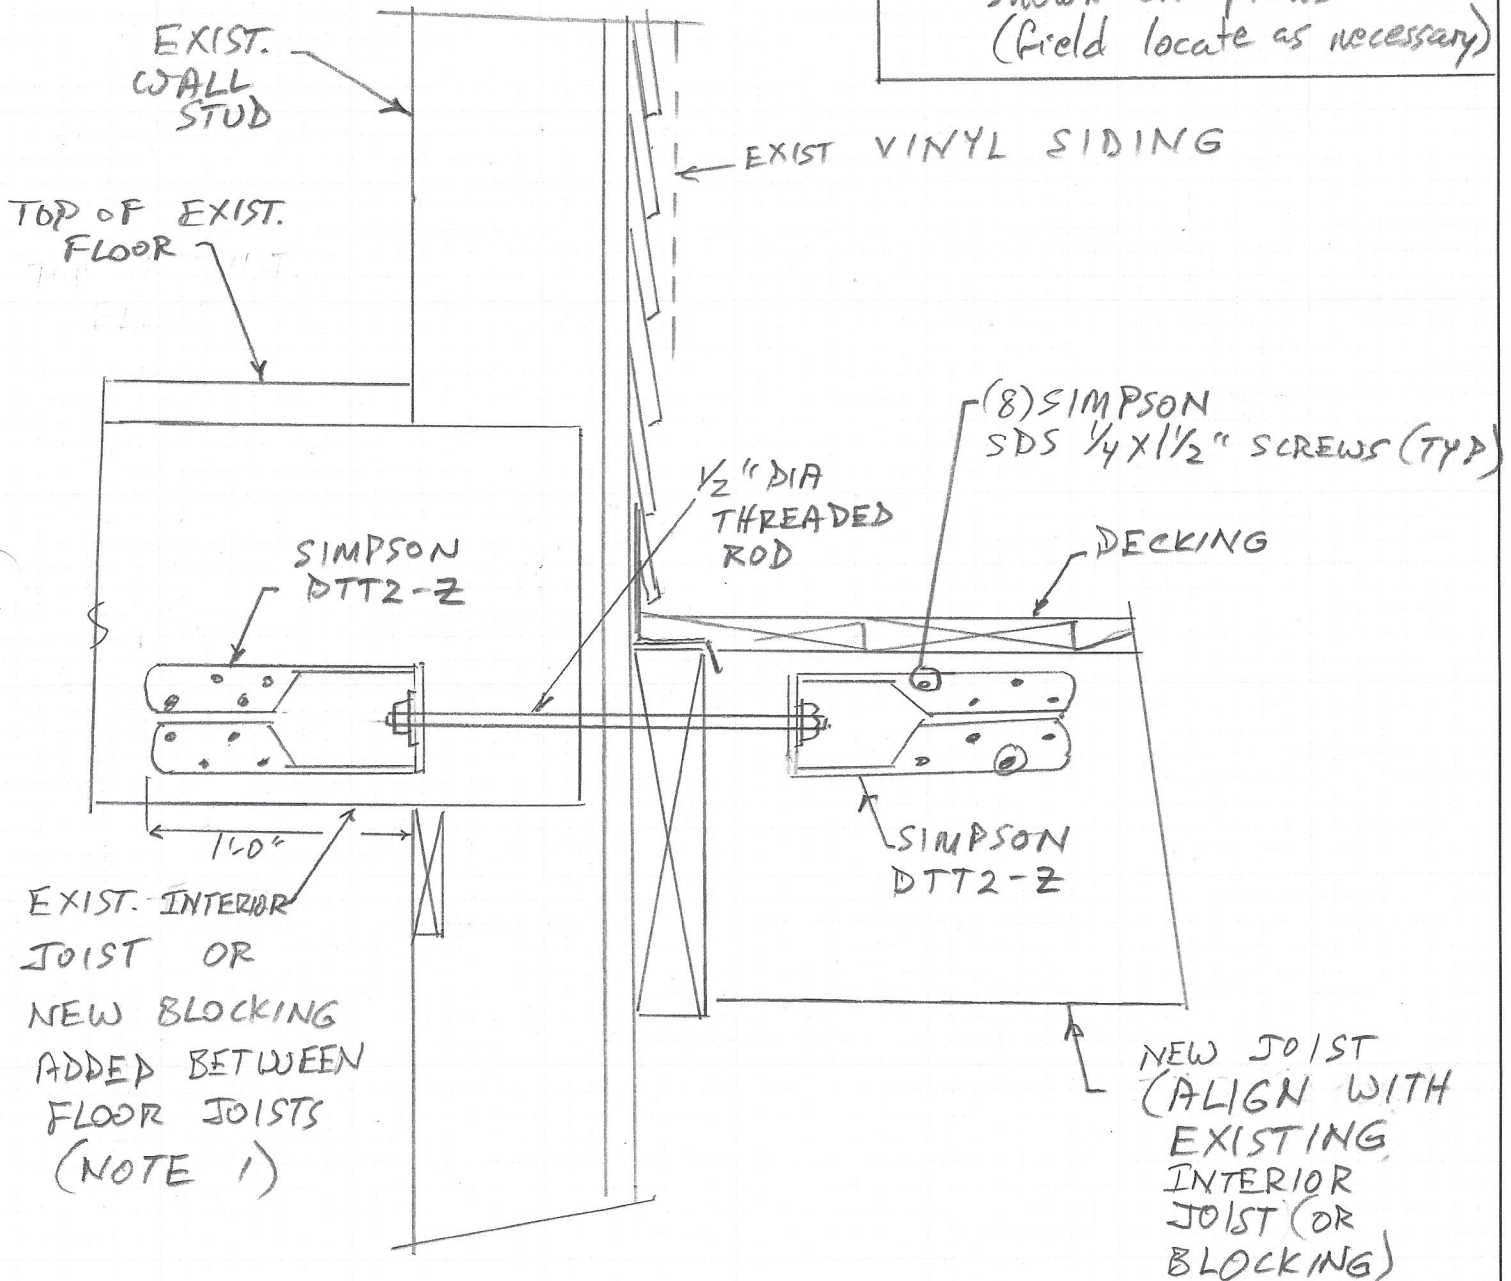 (field locate as necessary)
EXIST.
WALL
STUD
EXIST VINYL SIDING
TOP OF EXIST.
FLOOR
(8) SIMPSON
SDS 1/4 X 1 1/2" SCREWS (TYP)
1/2" DIA
THREADED
ROD
DECKING
SIMPSON
DTT2-Z
1'-0"
SIMPSON
DTT2-Z
EXIST. INTERIOR
JOIST OR
NEW BLOCKING
ADDED BETWEEN
FLOOR JOISTS
(NOTE 1)
NEW JOIST
(ALIGN WITH
EXISTING
INTERIOR
JOIST (OR
BLOCKING)